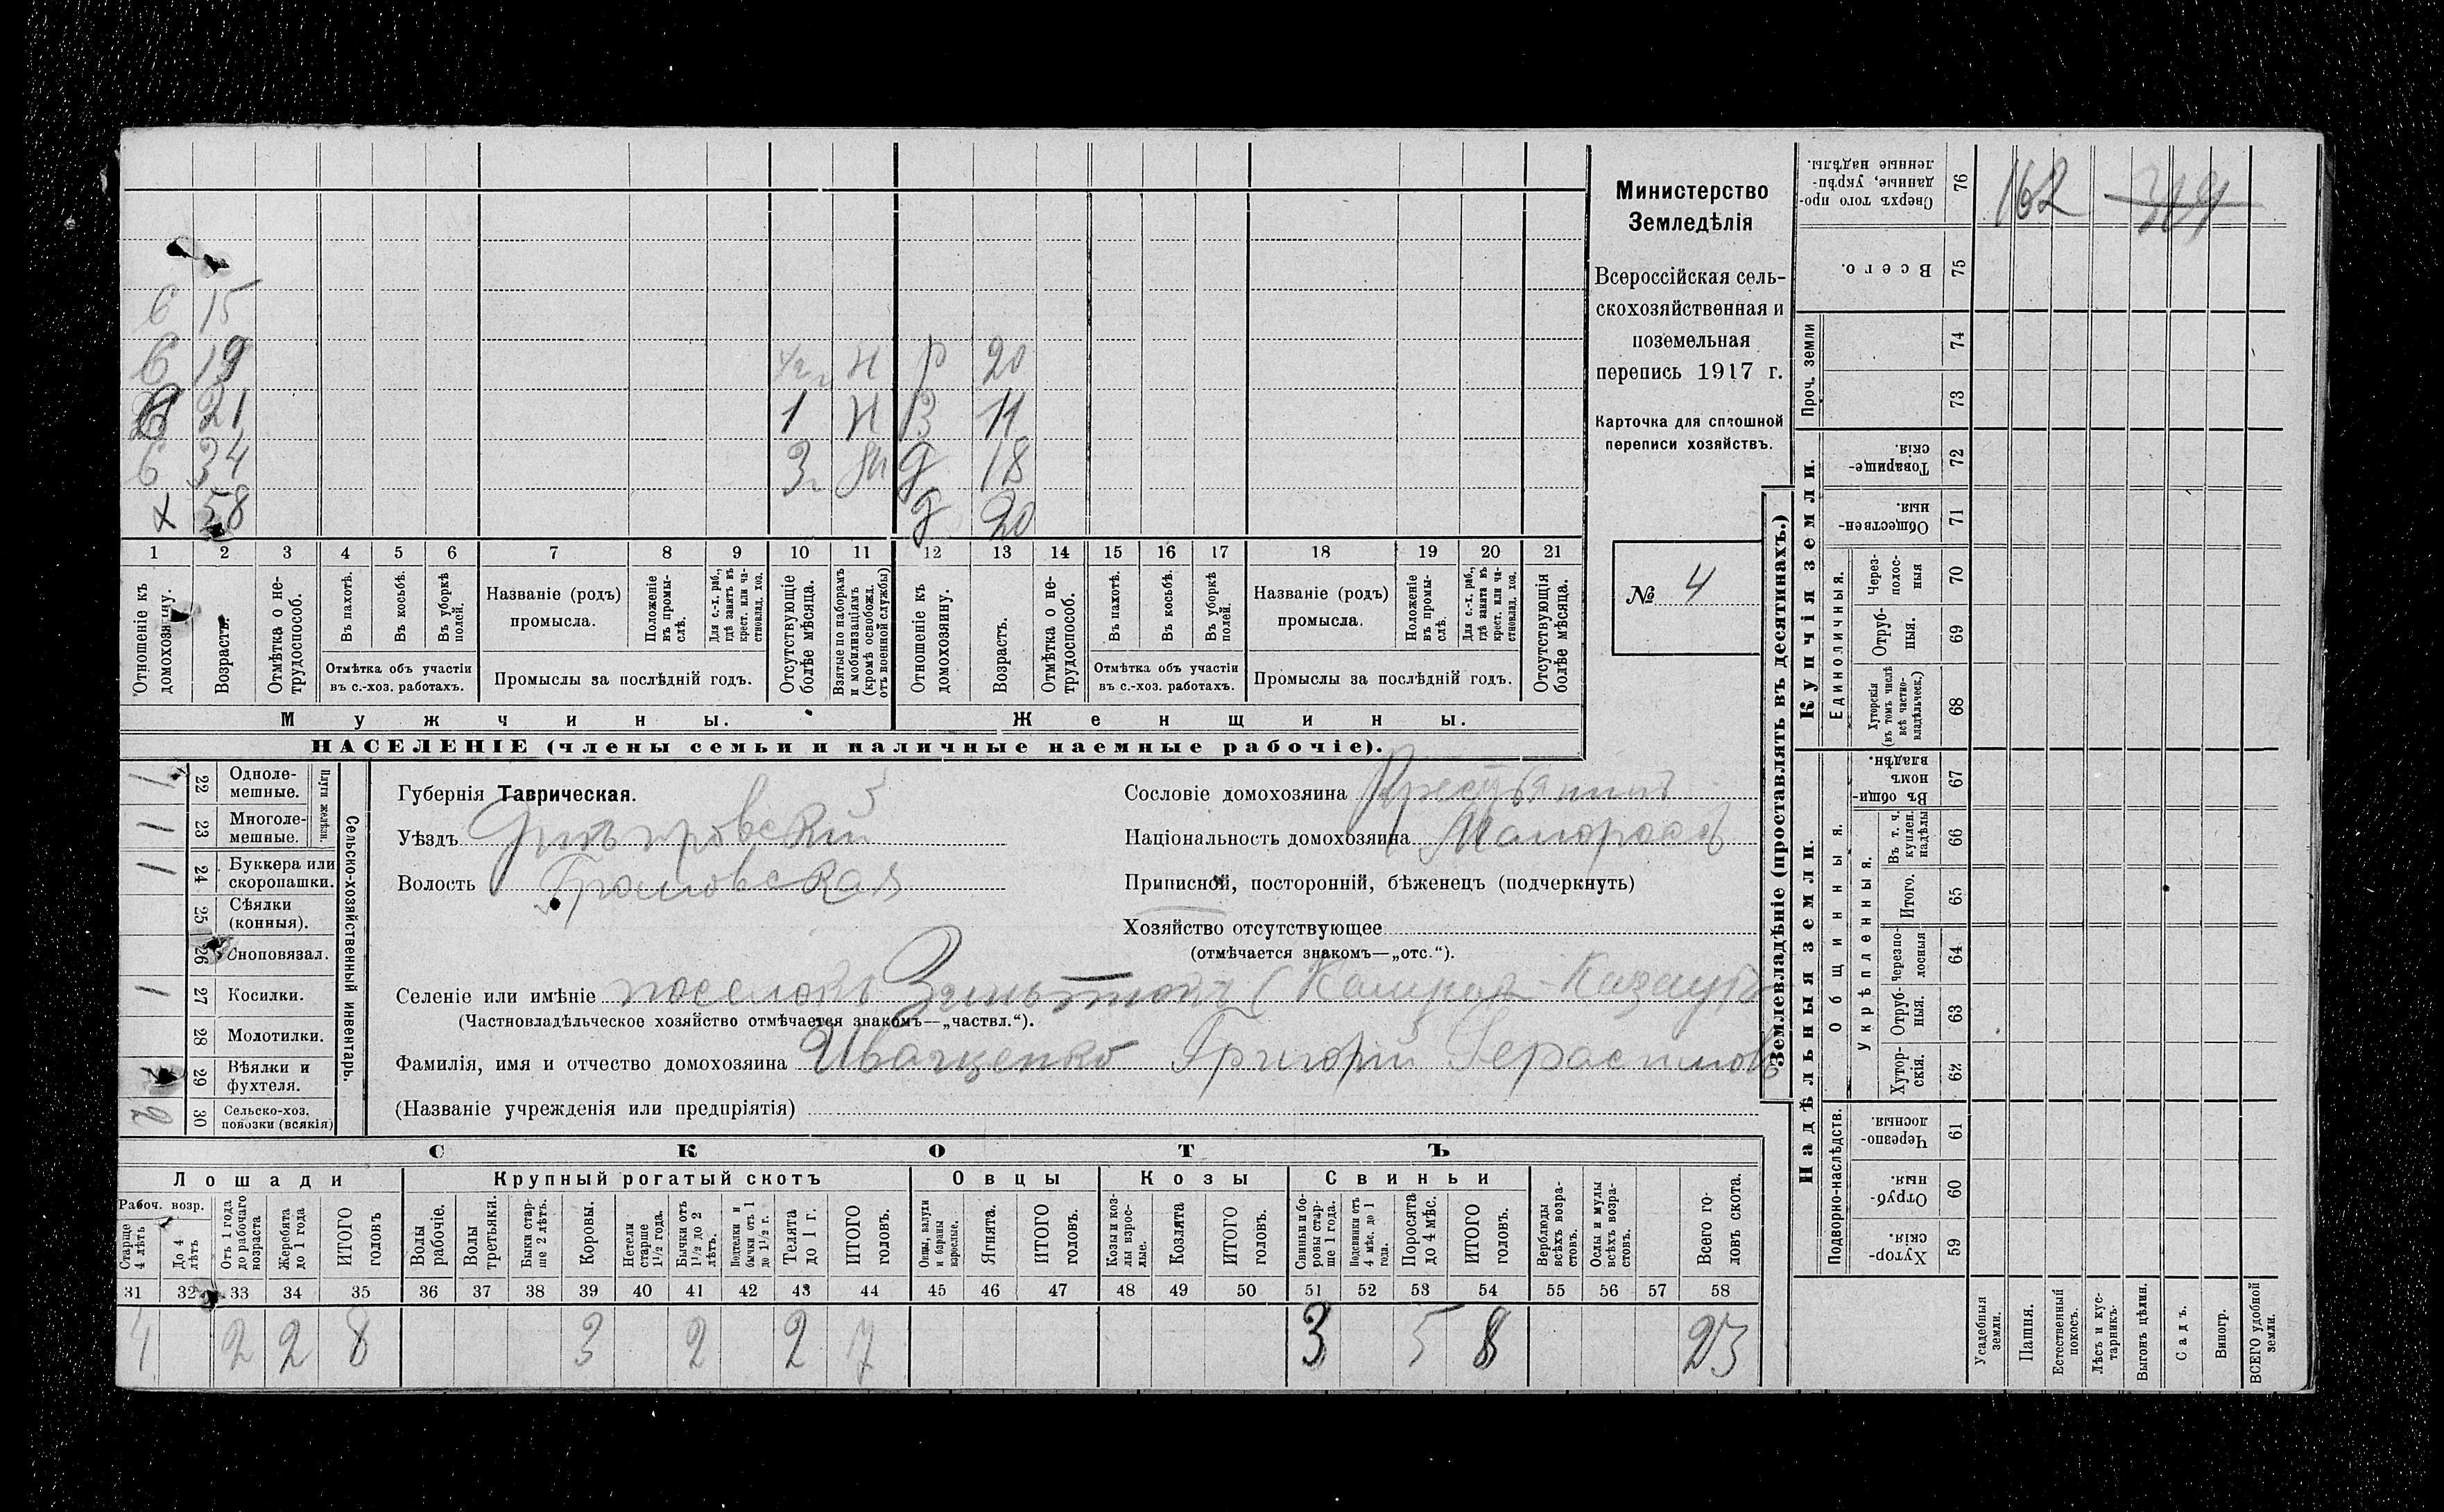 б 15
б 19 1/2 г Н р 20
21 1 Н В 11
б 34 3 г д 18
х 58 д 20
1 2 3 4 5 6 7 8 9 10 11 12 13 14 15 16 17 18 19 20 21
Отношеніе къ домохозяину.
Возрастъ.
Отмѣтка о не-трудоспособ.
Въ пахотѣ.
Въ косьбѣ.
Въ уборкѣ полей.
Отмѣтка объ участіи
въ с.-хоз. работахъ.
Названіе (родъ)
промысла.
Положеніе въ промы-слѣ.
Для с.-х. раб., гдѣ занятъ въ крест. или ча-стновлад. хоз.
Промыслы за послѣдній годъ.
Отсутствующіе болѣе мѣсяца.
Взятые по наборамъ и мобилизаціямъ (кромѣ освобожд. отъ военной службы)
Отношеніе къ домохозяину.
Возрастъ.
Отмѣтка о не-трудоспособ.
Въ пахотѣ.
Въ косьбѣ.
Въ уборкѣ полей.
Отмѣтка объ участіи
въ с.-хоз. работахъ.
Названіе (родъ)
промысла.
Положеніе въ промы-слѣ.
Для с.-х. раб., гдѣ занята въ крест. или ча-стновлад. хоз.
Промыслы за послѣдній годъ.
Отсутствующія болѣе мѣсяца.
Мужчины.
Женщины.
НАСЕЛЕНІЕ (члены семьи и наличные наемные рабочіе).
Министерство
Земледѣлія
Всероссійская сель-
скохозяйственная и
поземельная
перепись 1917 г.
Карточка для сплошной
переписи хозяйствъ.
№ 4
Сельско-хозяйственный инвентарь.
Плуги желѣзн.
1 22 Одноле-мешные.
1 23 Многоле-мешные.
1 24 Буккера или скоропашки.
25 Сѣялки (конныя).
26 Сноповязал.
1 27 Косилки.
28 Молотилки.
29 Вѣялки и фухтеля.
2 30 Сельско-хоз. повозки (всякія)
Губернія Таврическая.
Уѣздъ Днѣпровскій
Волость Громовская
Сословіе домохозяина Крестьянинъ
Національность домохозяина Малороссъ
Приписной, посторонній, бѣженецъ (подчеркнуть)
Хозяйство отсутствующее
(отмѣчается знакомъ—„отс.“).
Селеніе или имѣніе поселокъ (
(Частновладѣльческое хозяйство отмѣчается знакомъ—„частвл.“).
Фамилія, имя и отчество домохозяина Иващенко Григорій Герасимовъ
(Названіе учрежденія или предпріятія)
СКОТЪ
Лошади
Крупный рогатый скотъ
Овцы
Козы
Свиньи
Рабоч. возр.
Старше 4 лѣтъ
До 4 лѣтъ
Отъ 1 года до рабочаго возраста
Жеребята до 1 года
ИТОГО головъ
Волы рабочіе.
Волы третьяки.
Быки стар-ше 2 лѣтъ.
Коровы.
Нетели старше 1½ года.
Бычки отъ 1½ до 2 лѣтъ.
Подтелки и бычки отъ 1 до 1½ г.
Телята до 1 г.
ИТОГО головъ.
Овцы, валухи и бараны взрослые.
Ягнята.
ИТОГО головъ.
Козы и коз-лы взрос-лые.
Козлята
ИТОГО головъ.
Свиньи и бо-ровы стар-ше 1 года.
Подсвинки отъ 4 мѣс. до 1 года.
Поросята до 4 мѣс.
ИТОГО головъ.
Верблюды всѣхъ возра-стовъ.
Ослы и мулы всѣхъ возра-стовъ.
Всего го-ловъ скота.
31 32 33 34 35 36 37 38 39 40 41 42 43 44 45 46 47 48 49 50 51 52 53 54 55 56 57 58
4 2 2 8 3 2 2 7 3 5 8 23
Землевладѣніе (проставлять въ десятинахъ.)
Купчія земли.
Надѣльныя земли.
Сверхъ того про-данные, укрѣп-ленные надѣлы. 76 162 314
Всего. 75
Проч. земли
74
73
Товарище-скія. 72
Обществен-ныя. 71
Единоличныя.
Через-полос-ныя 70
Отруб-ныя. 69
Хуторскія (въ томъ числѣ всѣ частно-владѣльческ.) 68
Общинныя.
Въ общин-номъ владѣн. 67
Укрѣпленныя.
Въ т. ч. куплен. надѣлы 66
Итого. 65
Черезпо-лосныя 64
Отруб-ныя. 63
Хутор-скія. 62
Подворно-наслѣдств.
Черезпо-лосныя 61
Отруб-ныя 60
Хутор-скія. 59
Усадебныя земли.
Пашня.
Естественный покосъ.
Лѣсъ и кус-тарникъ.
Выгонъ цѣлин.
Садъ.
Виногр.
ВСЕГО удобной земли.